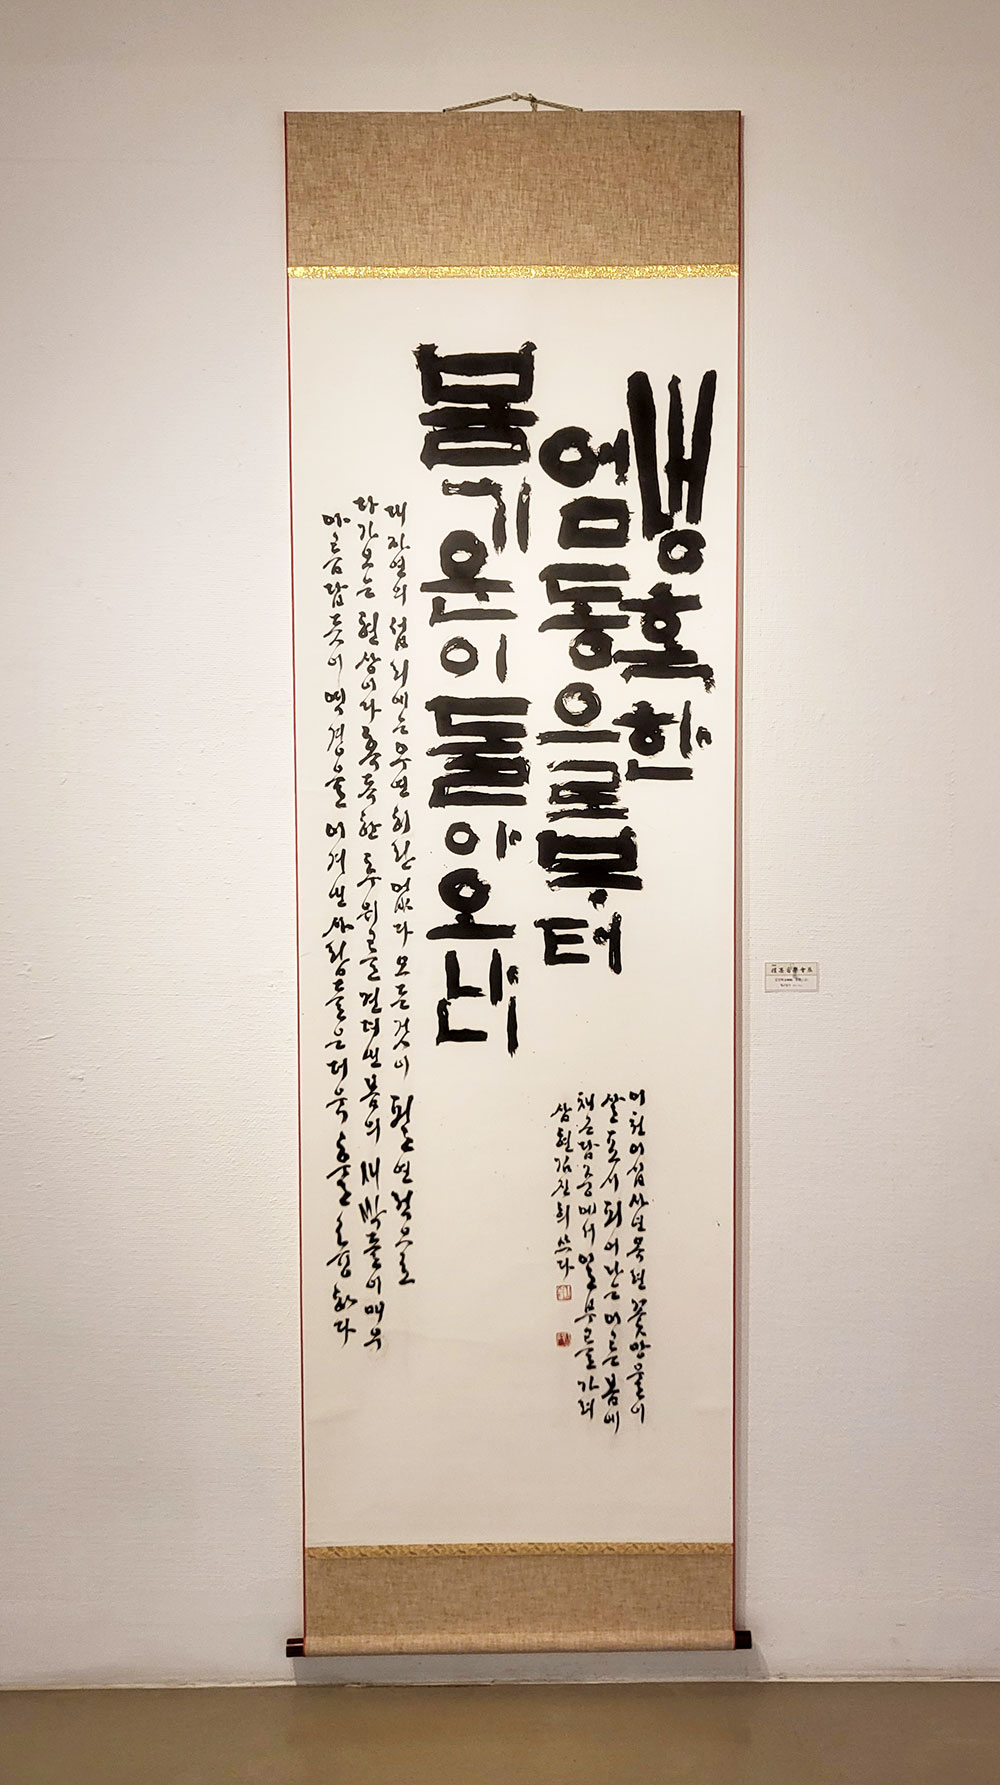 냉혹한
엄동으로부터
봄기운이 돌아오니
대자연의 섭리에는 우연히란 없다 모든 것이 필연적으로
다가오는 현상이다 혹독한 추위를 견뎌낸 봄의 새싹들이 매우
아름답듯이 역경을 이겨낸 사람들은 더욱 훌륭하다
이천이십사년 목련 꽃망울이
살포시 피어나는 이른 봄에
채근담 중에서 일부를 가려
삼현 김진희 쓰다